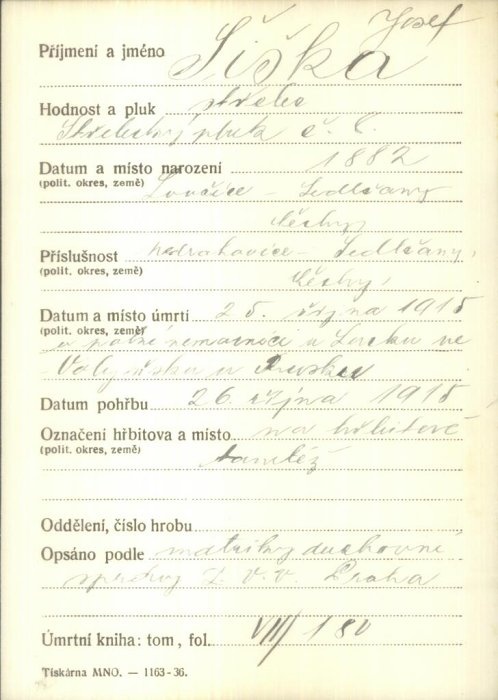 Josef
Příjmení a jméno Šiška
Hodnost a pluk střelec
Střelecký pluk č.
Datum a místo narození 1882
(polit. okres, země) Sedlčany
Čechy
Příslušnost Nedrahovice - Sedlčany,
(polit. okres, země) Čechy,
Datum a místo úmrtí 25. října 1915
(polit. okres, země) v polní nemocnici u Lucku ve
Volyňsku v Rusku
Datum pohřbu 26. října 1915
Označení hřbitova a místo na hřbitově
(polit. okres, země) tamtéž
Oddělení, číslo hrobu
Opsáno podle matriky duchovní
správy Z. V. V. Praha
Úmrtní kniha: tom, fol. VII/180
Tiskárna MNO. — 1163-36.